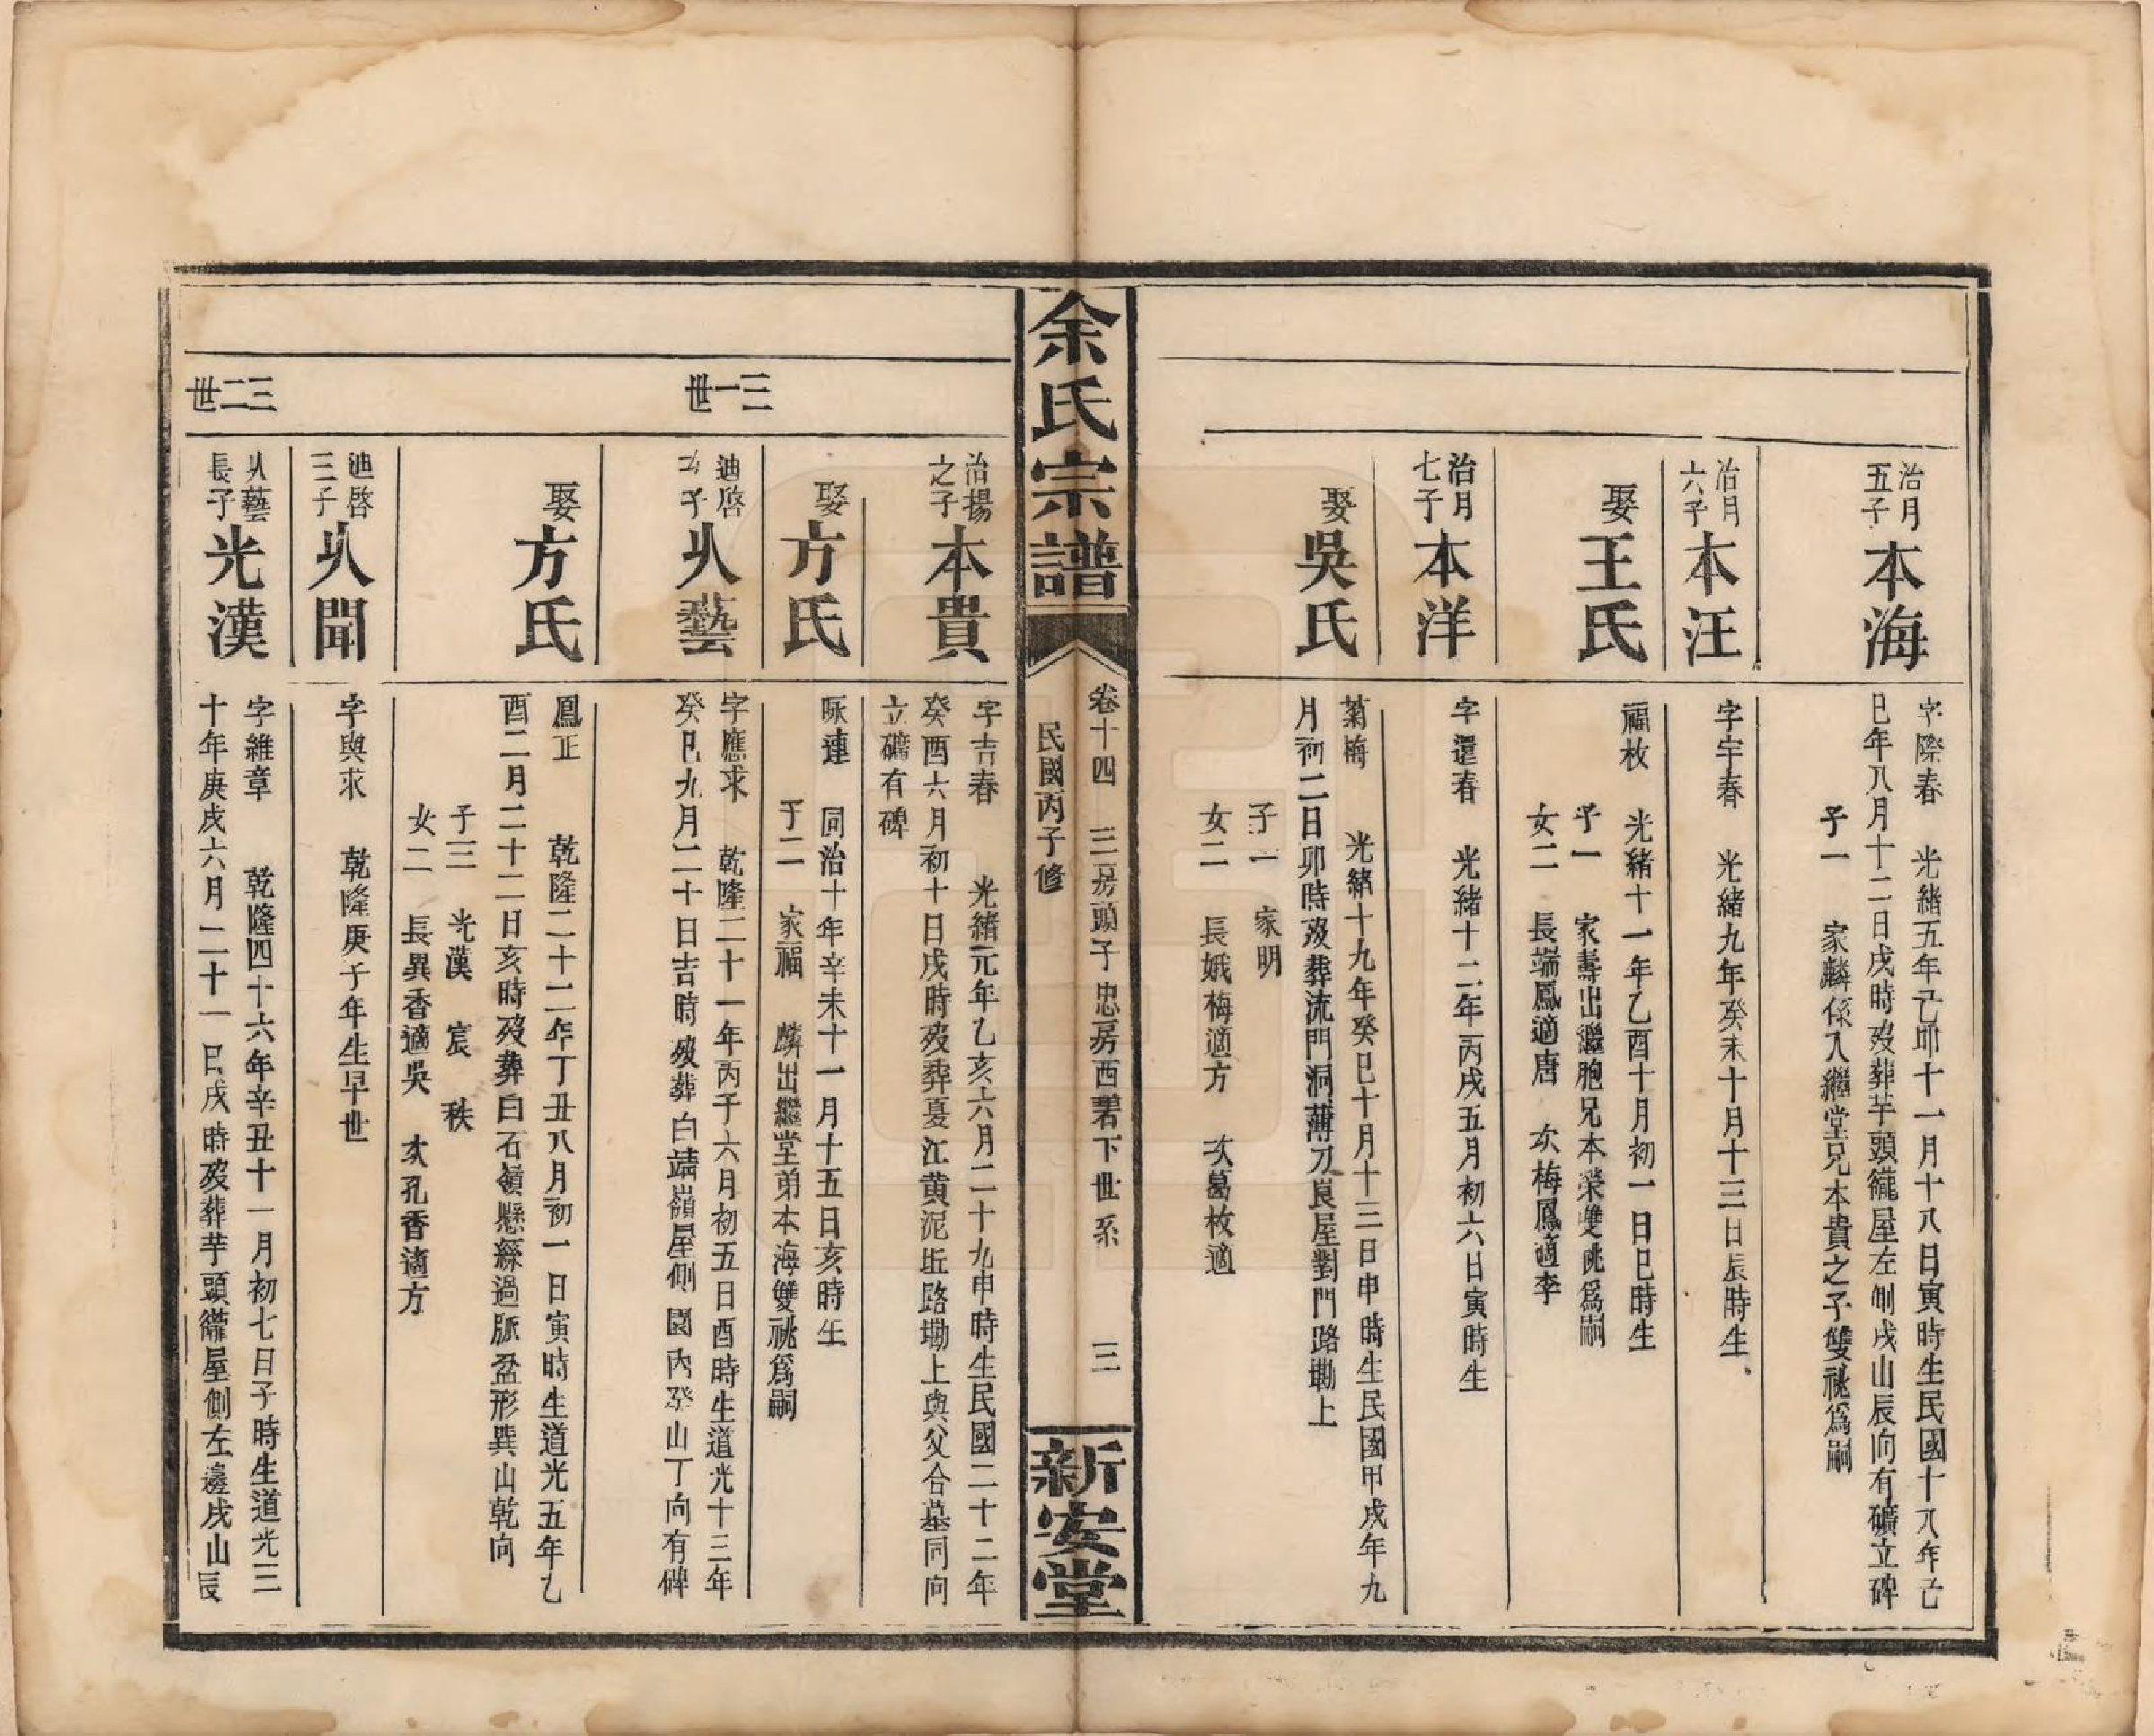 治月
五子
本海
字際春　光緒五年己卯十一月十八日寅時生民國十八年己
巳年八月十二日戌時歿葬芋頭𥴊屋左側戌山辰向有礦立碑
子一　家麟係入繼堂兄本貴之子雙祧爲嗣
治月
六子
本汪
字宇春　光緒九年癸未十月十三日辰時生、
娶
王氏
福枚　光緒十一年乙酉十月初一日巳時生
子一　家壽出繼胞兄本榮雙祧爲嗣
女二　長端鳳適唐　次梅鳳適李
治月
七子
本洋
字還春　光緒十二年丙戌五月初六日寅時生
娶
吳氏
菊梅　光緒十九年癸巳十月十三日申時生民國甲戌年九
月初二日卯時歿葬流門洞薄刀崀屋對門路墈上
子一　家明
女二　長娥梅適方　次葛枚適
余氏宗譜
卷十四　三房頭子忠房西碧下世系　三
民國丙子修
新安堂
治揚
之子
本貴
字吉春　光緒元年乙亥六月二十九申時生民國二十二年
癸酉六月初十日戌時歿葬夏江黄泥坵路墈上與父合墓同向
立礦有碑
娶
方氏
咏連　同治十年辛未十一月十五日亥時生
子二　家福　麟出繼堂弟本海雙祧爲嗣
三一世
迪啓
次子
㐺藝
字應求　乾隆二十一年丙子六月初五日酉時生道光十三年
癸巳九月二十日吉時歿葬白靖嶺屋側園內癸山丁向有碑
娶
方氏
鳳正　乾隆二十二年丁丑八月初一日寅時生道光五年乙
酉二月二十二日亥時歿葬白石嶺懸繇過脈盆形巽山乾向
子三　光漢　宸　秩
女二　長異香適吳　次孔香適方
迪啓
三子
㐺聞
字與求　乾隆庚子年生早世
三二世
㐺藝
長子
光漢
字雒章　乾隆四十六年辛丑十一月初七日子時生道光三
十年庚戌六月二十一日戌時歿葬芋頭𥴊屋側左邊戌山辰